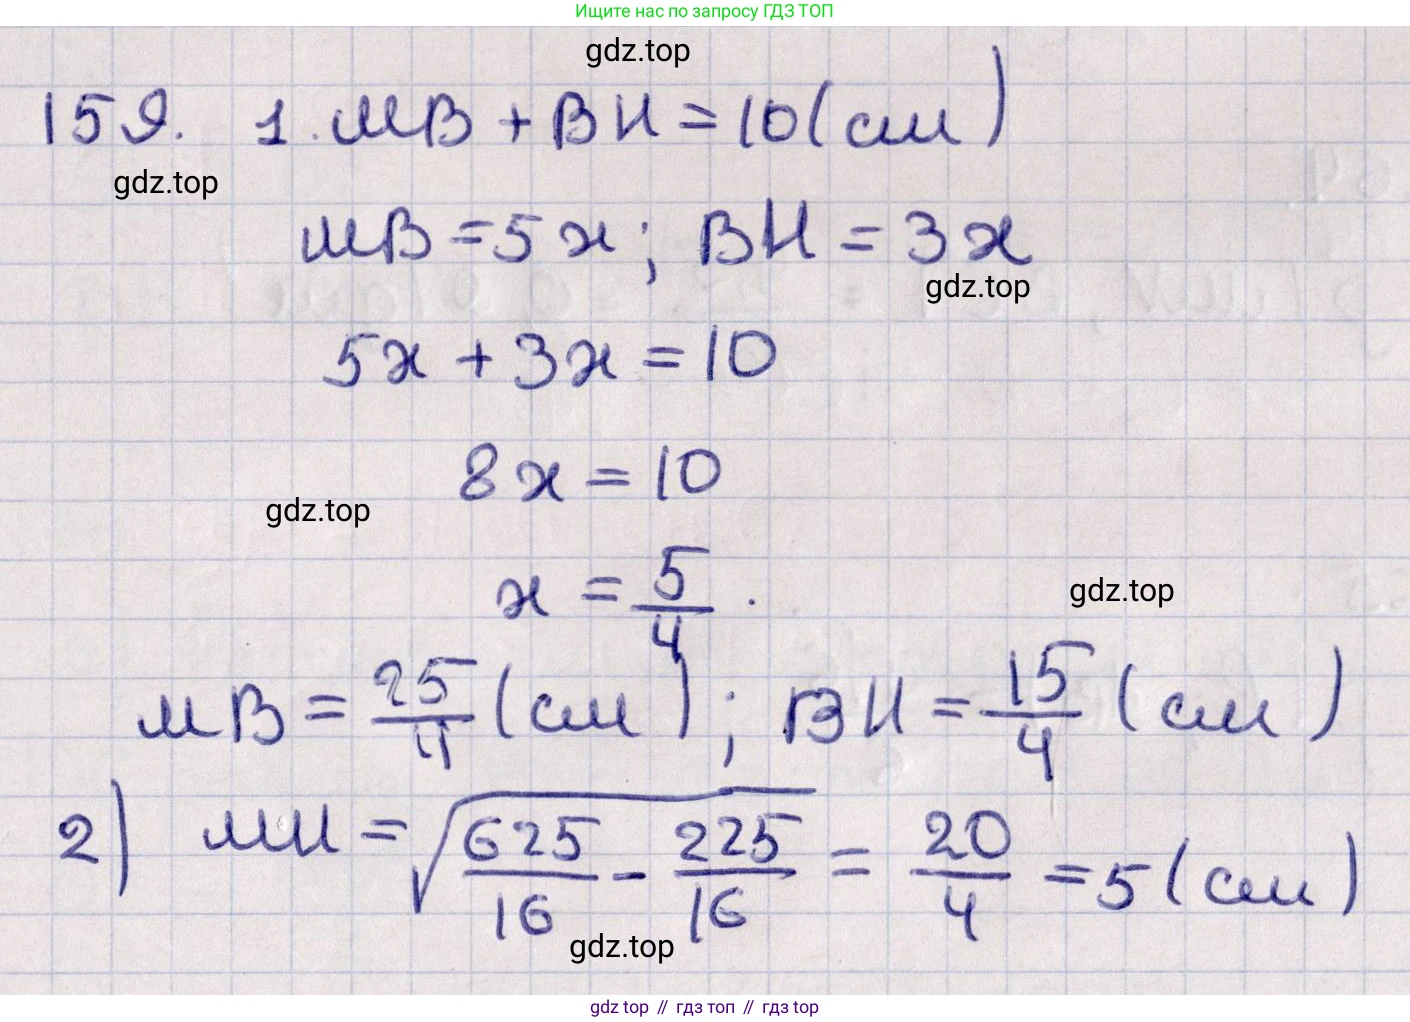 Ищите нас по запросу ГДЗ ТОП
gdz.top
159. 1. MB + BH = 10 (см)
gdz.top
MB = 5x; BH = 3x
gdz.top
5x + 3x = 10
8x = 10
gdz.top
x = 5/4.
gdz.top
MB = 25/4 (см); BH = 15/4 (см)
2) MH = √(625/16 - 225/16) = 20/4 = 5 (см)
gdz.top
gdz top // гдз топ // гдз top